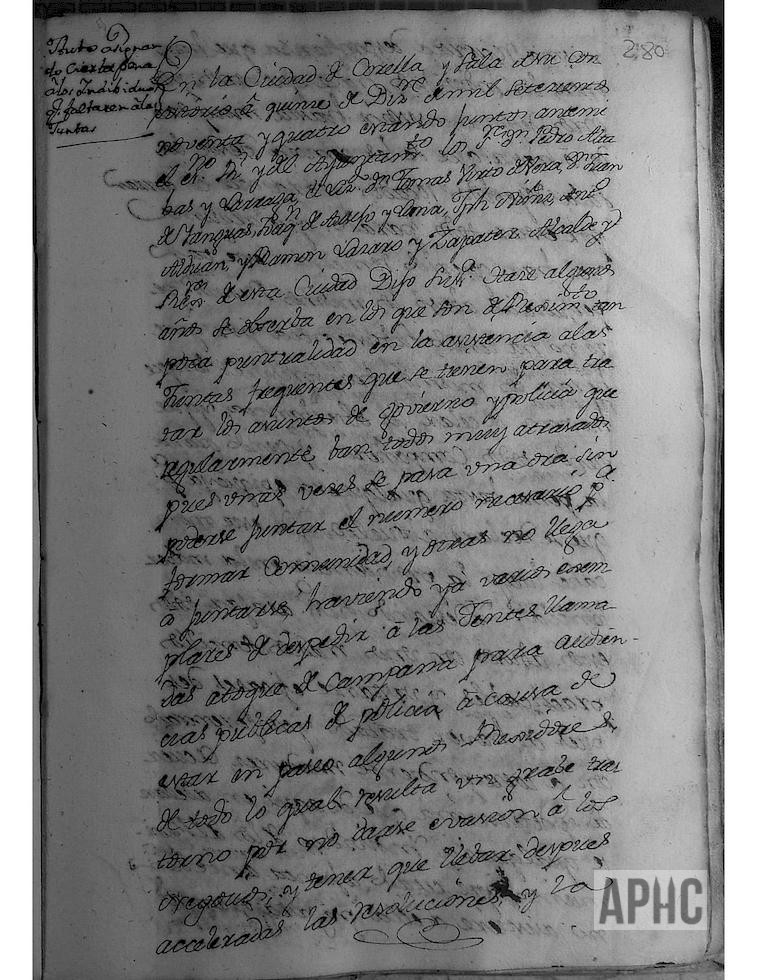 280
Auto asignan
do Cierta pena
a los Individuos
q.e faltaren a las
Juntas
En la Ciudad de Corella y Sala de su Con
sistorio à quince de Diz.re de mil setecientos
noventa y quatro estando juntos ante mi
el es.no R.l y del Ayuntam.to los S.res Dn Pedro Alca
y Larraga, Dn Tomas Virto de Vera, Dn Juan
de Sanguas,
Arduan, y Ramon Lazaro y Zapater Alcalde y
Rexi.res de esta Ciudad Dijo Su S.a Que de algunos
años se obserba en los que son de Rexim.to tan
poca puntualidad en la asistencia a las
Juntas frequentes que se tienen para tra
tar los asuntos de govierno y policia que
regularmente ban todos muy atrasados
pues unas veces se pasa una ora sin
poderse juntar el numero necesario p.a
formar Comunidad, y otras no llega
a juntarse, haviendo ya varios exem
plares de despedir à las Jentes llama
das atoque de Campana para audien-
cias publicas de policia à causa de
estar en paseo algunos Rexidores
de todo lo qual resulta un grabe tras
torno por no darse evasion à los
negocios, y tener que llebar despues
acceleradas las resoluciones, y la
APHC